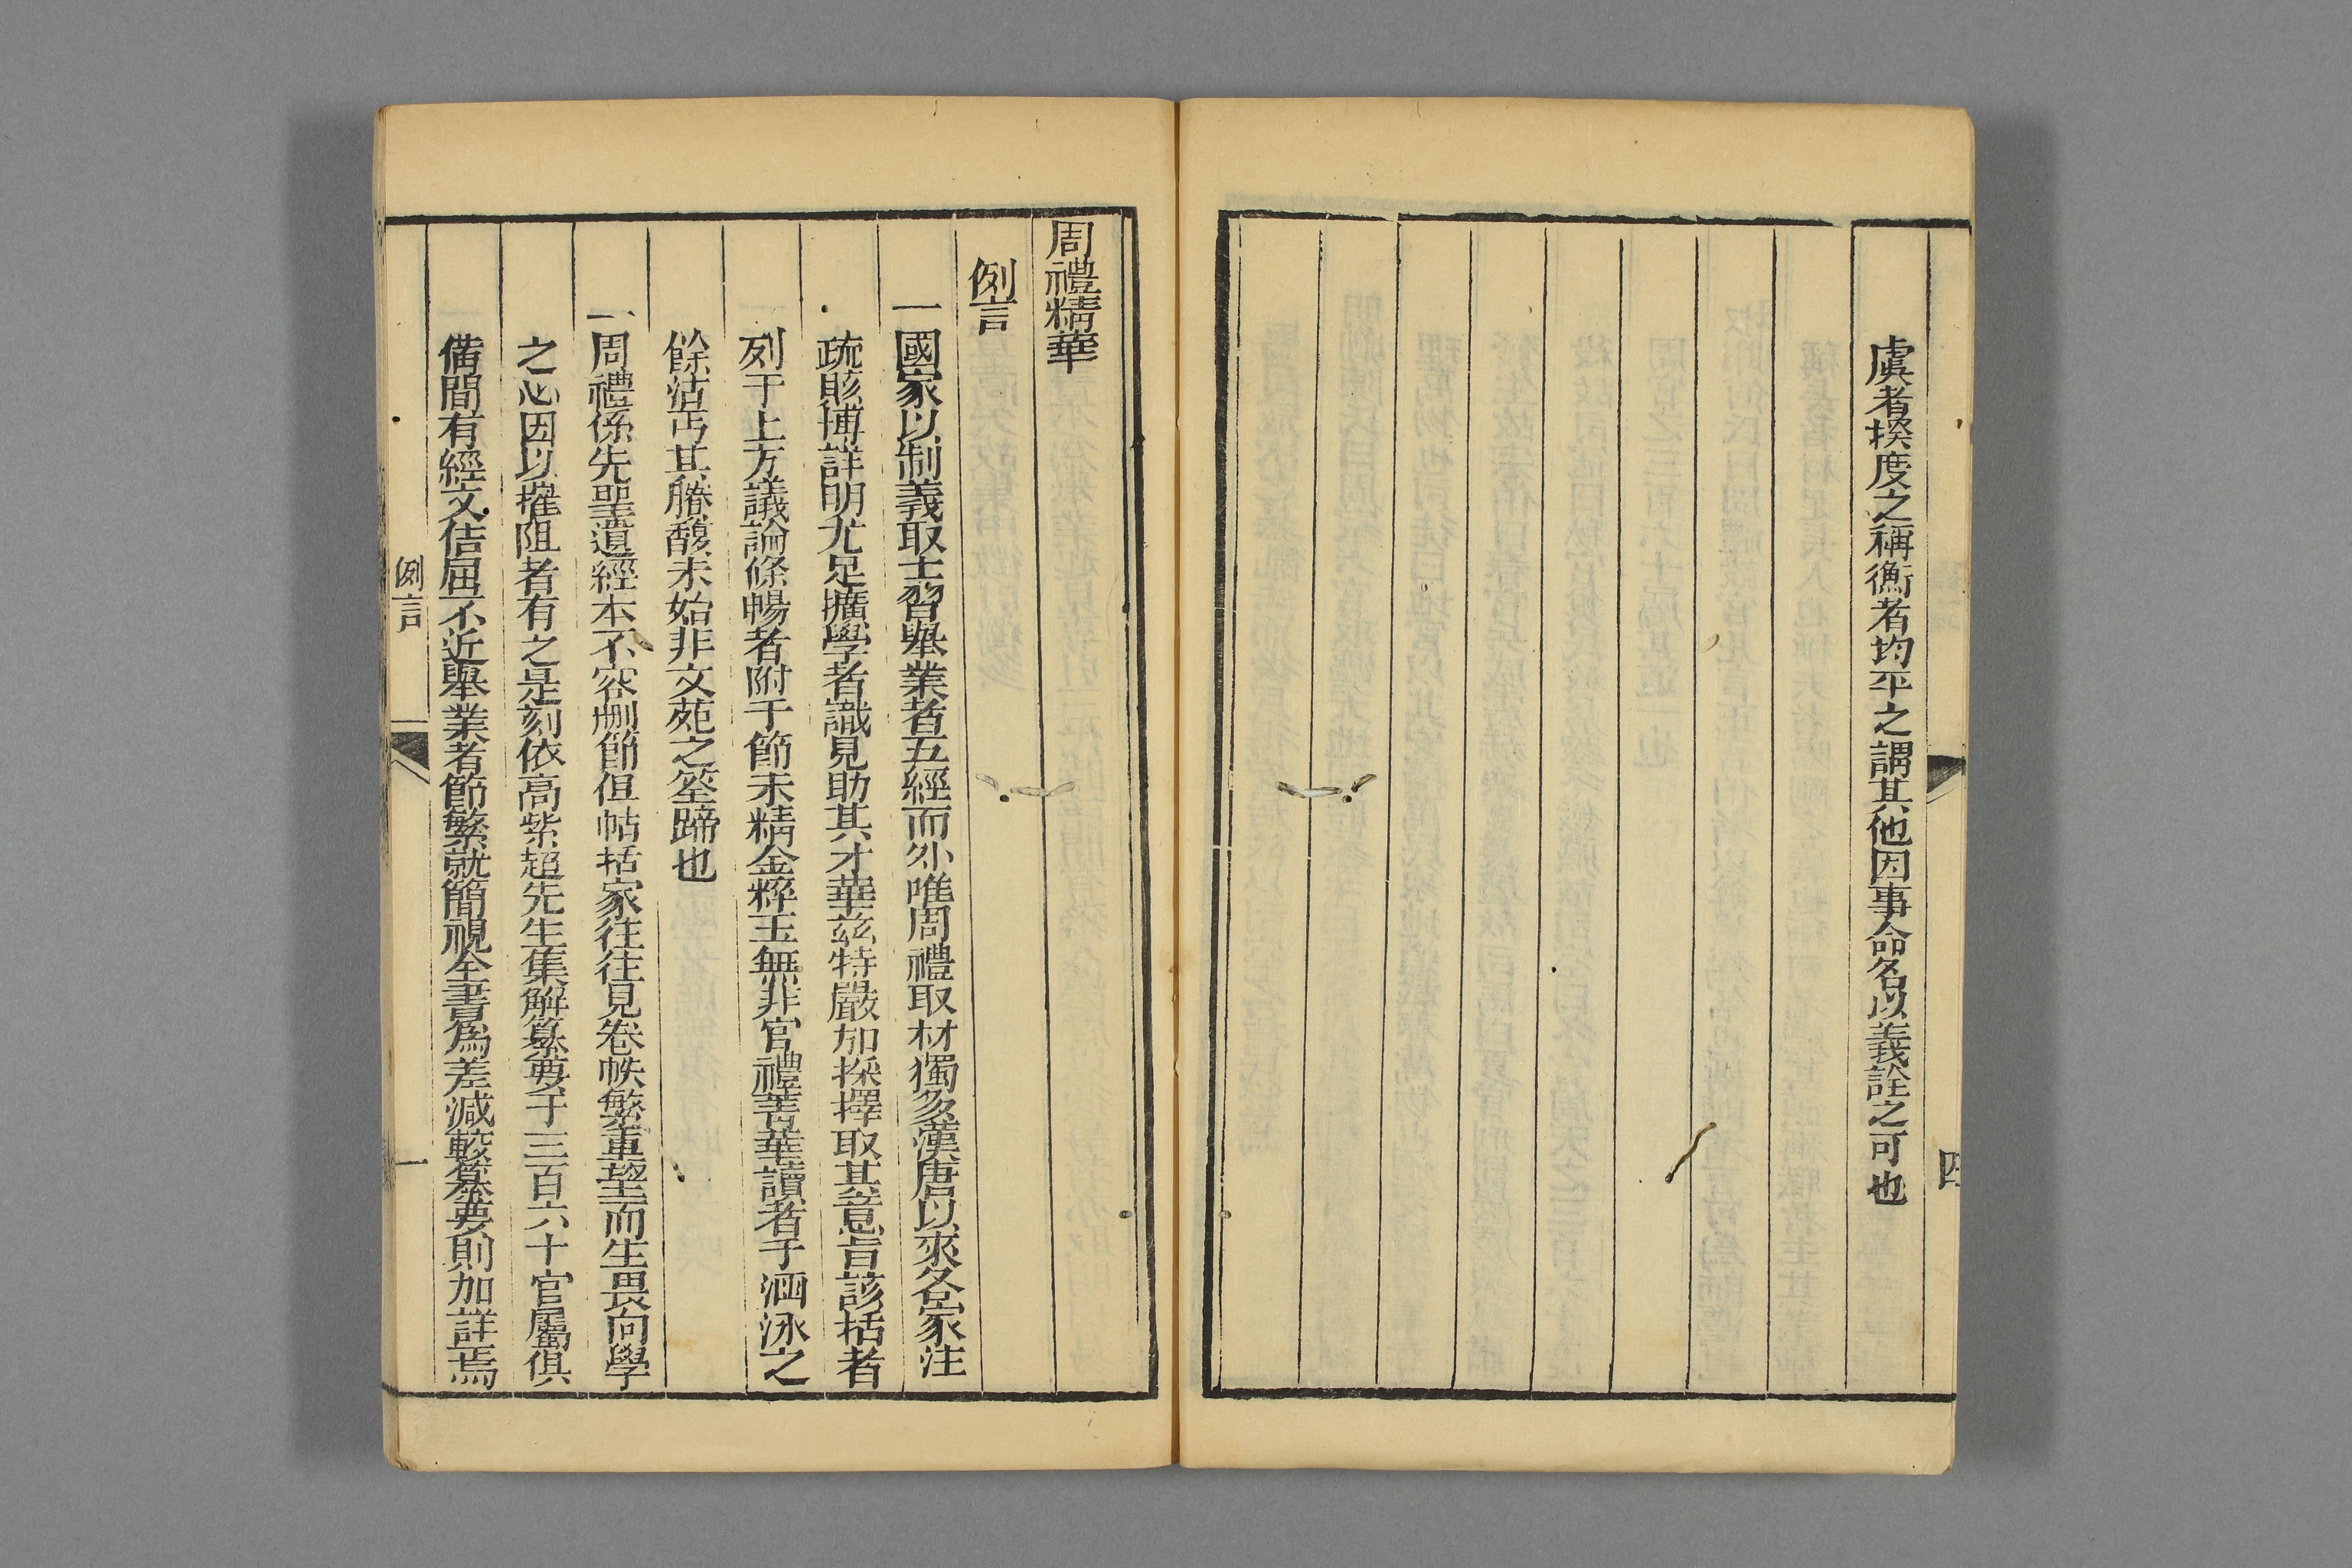 虞者揆度之稱衡者均平之謂其他因事命名以義詮之可也
四
周禮精華
例言
一國家以制義取士習舉業者五經而外唯周禮取材獨多漢唐以來名家注
疏賅博詳明尤足擴學者識見助其才華茲特嚴加採擇取其意旨該括者
列于上方議論條暢者附于節末精金粹玉無非官禮菁華讀者于涵泳之
餘沾丐其賸馥未始非文苑之筌蹄也
一周禮係先聖遺經本不容刪節但帖括家往往見卷帙繁重望而生畏向學
之心因以摧阻者有之是刻依高紫超先生集解纂要于三百六十官屬俱
備間有經文佶屈不近舉業者節繁就簡視全書為差減較纂要則加詳焉
例言
一